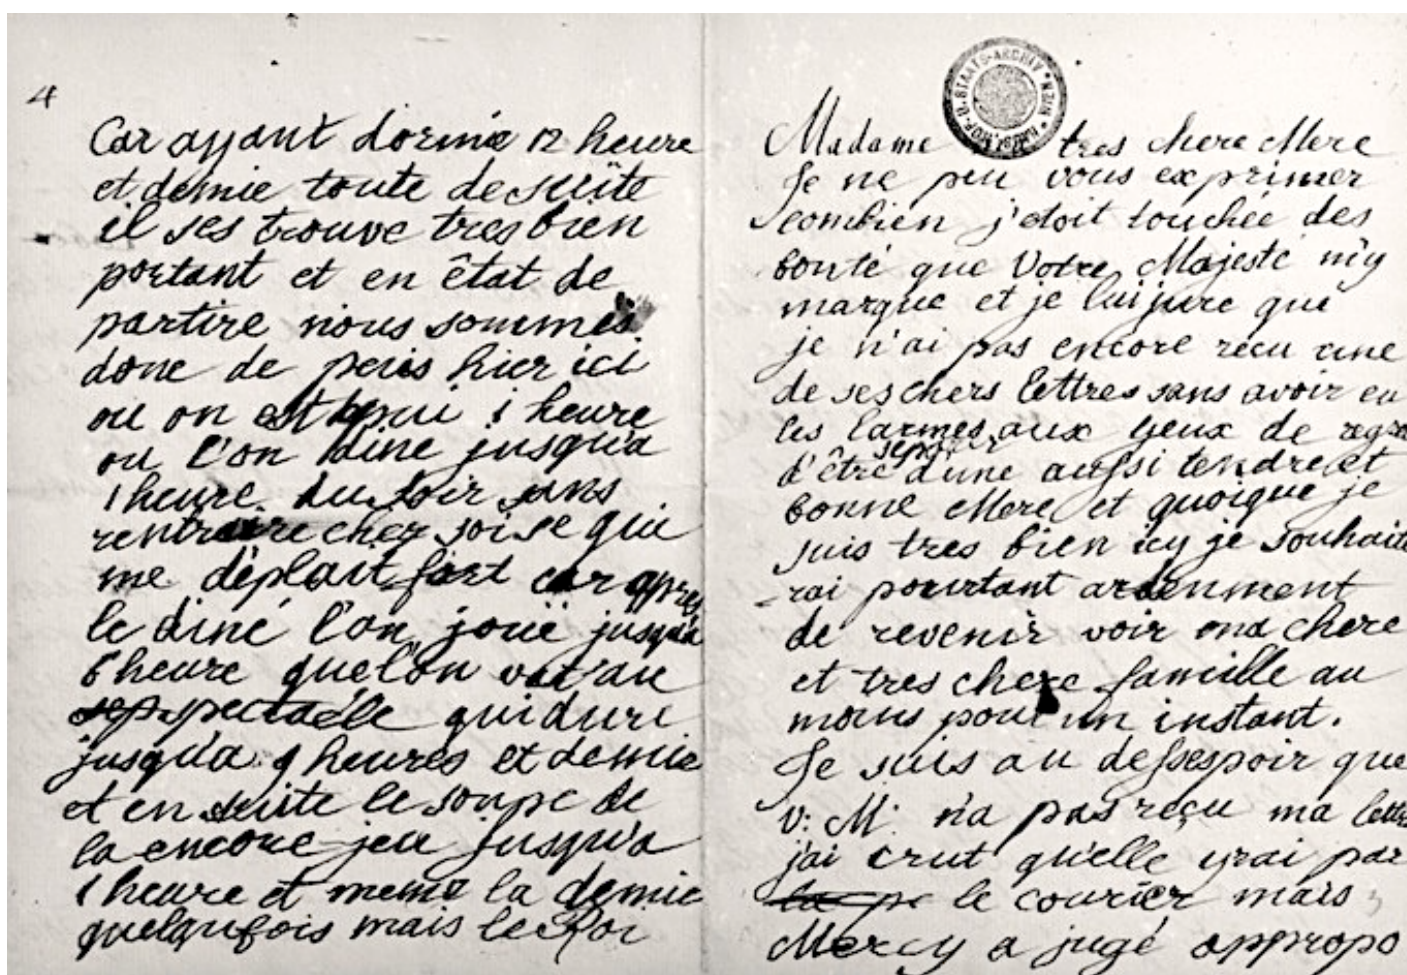 4
Car ayant dormie 12 heure
et demie toute de suïte
il ses trouve tres bien
portant et en êtat de
partire nous sommes
donc de peuis hier ici
ou on est 1 heure
ou l'on dine jusqu'a
1 heure du soir sans
rentrere chez soi se qui
me déplait fort car apres
le diné l'on joüe jusqu'a
6 heure que l'on vat au
sep spectaélle qui dure
jusqu'a 9 heures et demie
et en suite le soupe de
la encore jeu jusqu'a
1 heure et meme la demie
quelqufois mais le Roi
Madame tres chere Mere
Je ne peu vous exprimer
combien j'etoit touchée des
bonté que Votre Majesté m'y
marque et je lui jure que
je n'ai pas encore recu une
de ses chers lettres sans avoir eu
les larmes aux yeux de regre
d'être d'une aussi tendre et
bonne Mere et quoique je
suis tres bien icy je souhaite
-rai pourtant ardenment
de revenir voir ma chere
et tres chere famille au
moins pour un instant.
Je suis au dessespoir que
V: M: n'a pas reçu ma lettre
j'ai crut qu'elle yrai par
le courier mais
Mercy a jugé appropo